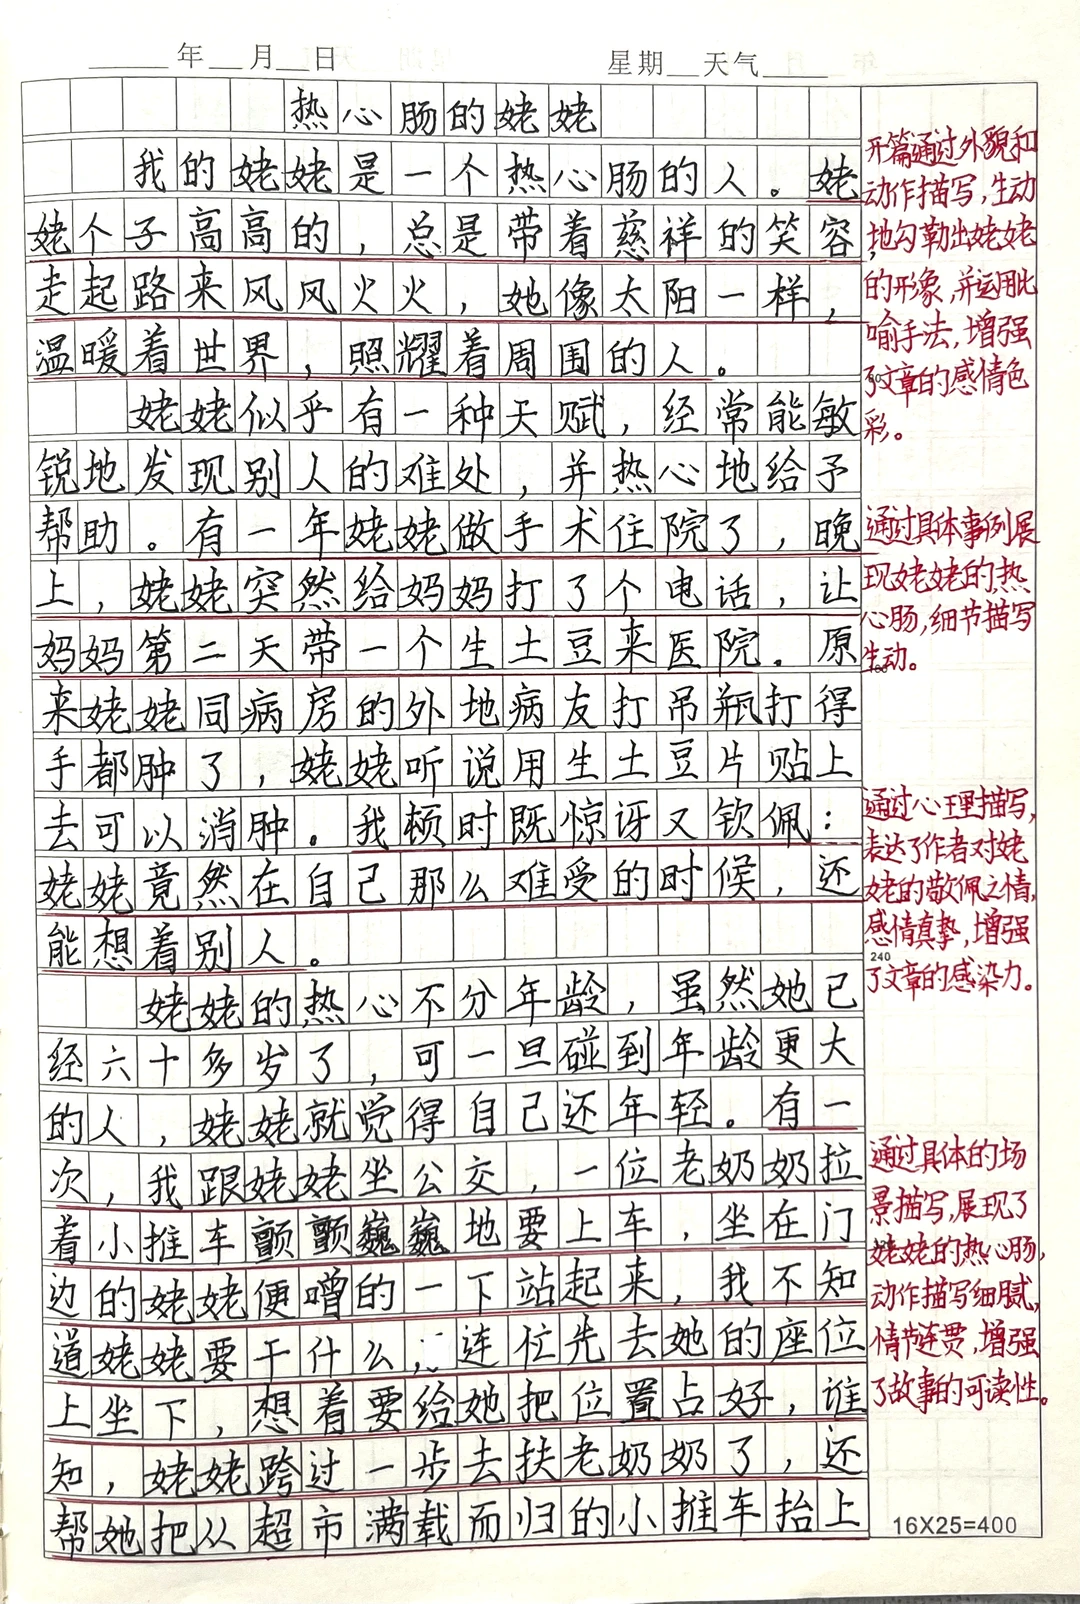 ___年__月__日 星期__天气____
热心肠的姥姥
我的姥姥是一个热心肠的人。姥
姥个子高高的，总是带着慈祥的笑容，
走起路来风风火火，她像太阳一样，
温暖着世界，照耀着周围的人。
姥姥似乎有一种天赋，经常能敏
锐地发现别人的难处，并热心地给予
帮助。有一年姥姥做手术住院了，晚
上，姥姥突然给妈妈打了个电话，让
妈妈第二天带一个生土豆来医院。原
来姥姥同病房的外地病友打吊瓶打得
手都肿了，姥姥听说用生土豆片贴上
去可以消肿。我顿时既惊讶又钦佩：
姥姥竟然在自己那么难受的时候，还
能想着别人。
姥姥的热心不分年龄，虽然她已
经六十多岁了，可一旦碰到年龄更大
的人，姥姥就觉得自己还年轻。有一
次，我跟姥姥坐公交，一位老奶奶拉
着小推车颤颤巍巍地要上车，坐在门
边的姥姥便噌的一下站起来，我不知
道姥姥要干什么，连忙先去她的座位
上坐下，想着要给她把位置占好，谁
知，姥姥跨过一步去扶老奶奶了，还
帮她把从超市满载而归的小推车抬上
开篇通过外貌和
动作描写，生动
地勾勒出姥姥
的形象，并运用比
喻手法，增强
了文章的感情色
彩。
通过具体事例展
现姥姥的热
心肠，细节描写
生动。
160
通过心理描写，
表达了作者对姥
姥的敬佩之情，
感情真挚，增强
240
了文章的感染力。
通过具体的场
景描写，展现了
姥姥的热心肠，
动作描写细腻，
情节连贯，增强
了故事的可读性。
16X25=400